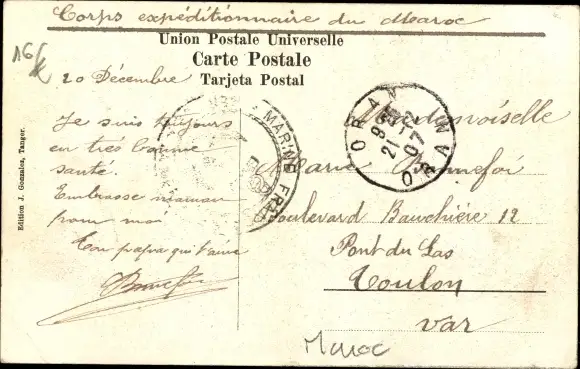 Corps expéditionnaire du Maroc
Union Postale Universelle
Carte Postale
Tarjeta Postal
20 Décembre
Je suis toujours
en très bonne
santé.
Embrasse maman
pour moi
Ton papa qui t'aime
Bonnefoi
Mademoiselle
Marie Bonnefoi
Boulevard Bauchière 12
Pont du Las
Toulon
Var
Maroc
ORAN
21
07
ORAN
MARINE FRA
Edition J. Gonzalez, Tanger.